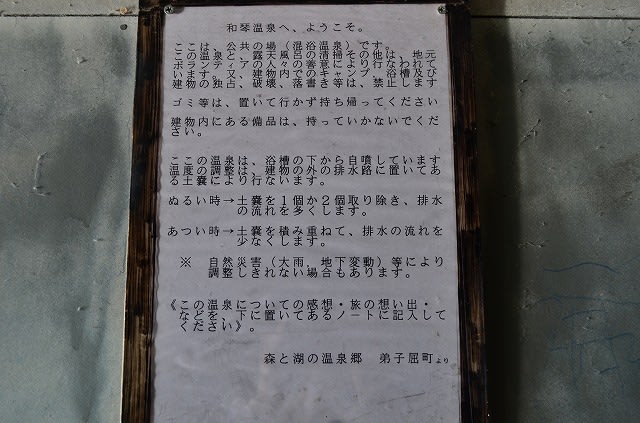 和琴温泉へ、ようこそ。
ここは、公共の場（混浴温泉）です。
この温泉と、露天風呂の清掃その他は、地元
ボランティアの人々の善意により行なわれて
います。又、建物内でのキャンプ、浴槽及び
建物の独占、破壊、落書き等は、禁止します
ゴミ等は、置いて行かず持ち帰ってください
建物内にある備品は、持っていかないでくだ
さい。
ここの温泉は、浴槽の下から自噴しています
温度の調整は、建物の外の排水路に置いてあ
る土嚢により行ないます。
ぬるい時→土嚢を１個か２個取り除き、排水
の流れを多くします。
あつい時→土嚢を積み重ねて、排水の流れを
少なくします。
※　自然災害（大雨、地下変動）等により
調整しきれない場合もあります。
《この温泉についての感想・旅の想い出・
などを、下に置いてあるノートに記入して
ください》。
森と湖の温泉郷　弟子屈町より